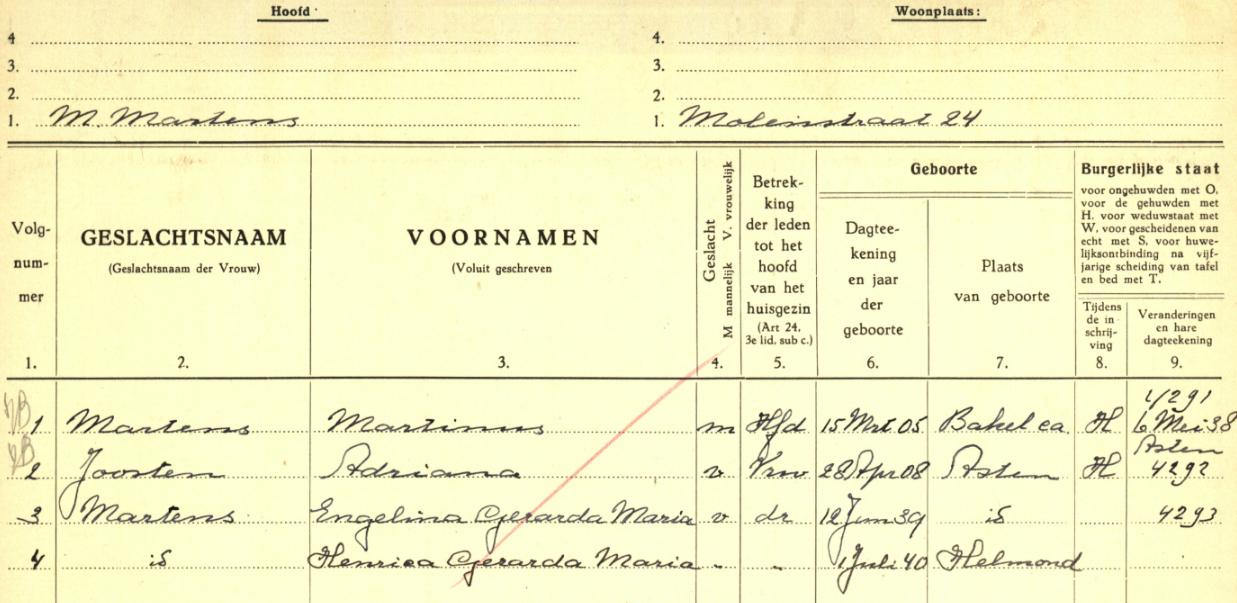 Hoofd Woonplaats:
4 4.
3. 3.
2. 2.
1. M. Martens 1. Molenstraat 24
Volg-
num-
mer
1.
GESLACHTSNAAM
(Geslachtsnaam der Vrouw)
2.
VOORNAMEN
(Voluit geschreven
3.
Geslacht
M mannelijk V. vrouwelijk
4.
Betrek-
king
der leden
tot het
hoofd
van het
huisgezin
(Art 24,
3e lid, sub c.)
5.
Geboorte
Dagtee-
kening
en jaar
der
geboorte
6.
Plaats
van geboorte
7.
Burgerlijke staat
voor ongehuwden met O,
voor de gehuwden met
H. voor weduwstaat met
W. voor gescheidenen van
echt met S. voor huwe-
lijksontbinding na vijf-
jarige scheiding van tafel
en bed met T.
Tijdens
de in
schrij-
ving
8.
Veranderingen
en hare
dagteekening
9.
1 Martens Martinus m Hfd 15 Mrt 05 Bakel ca. H 6 Mei 38
Asten
2 Joosten Adriana v Vrw 28 Apr 08 Asten H 4292
3 Martens Engelina Gerarda Maria v dr 12 Jun 39 id 4293
4 id Henrica Gerarda Maria " " 1 Juli 40 Helmond